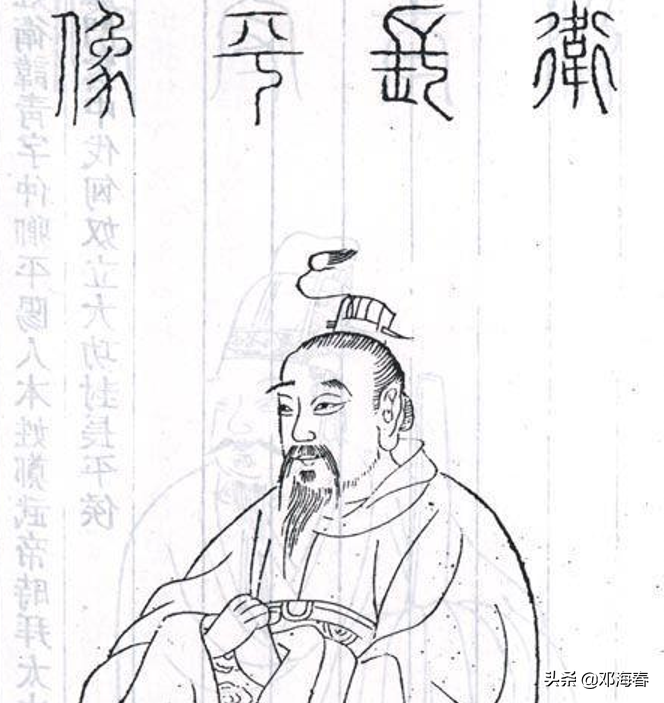 衛長平像
衛諱青字仲卿平陽人本姓鄭武帝時拜太
伐匈奴立大功封長平侯
头条 @邓海春